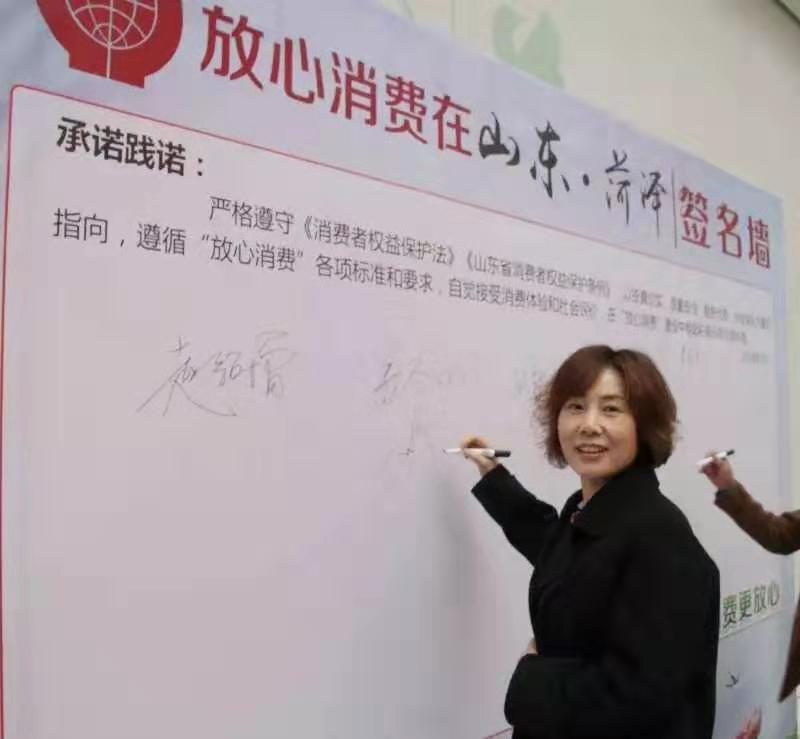 放心消费在山东·菏泽|签名墙
承诺践诺：
严格遵守《消费者权益保护法》《山东省消费者权益保护条例》
指向，遵循“放心消费”各项标准和要求，自觉接受消费体验和社会评价，在“放心消费
费更放心